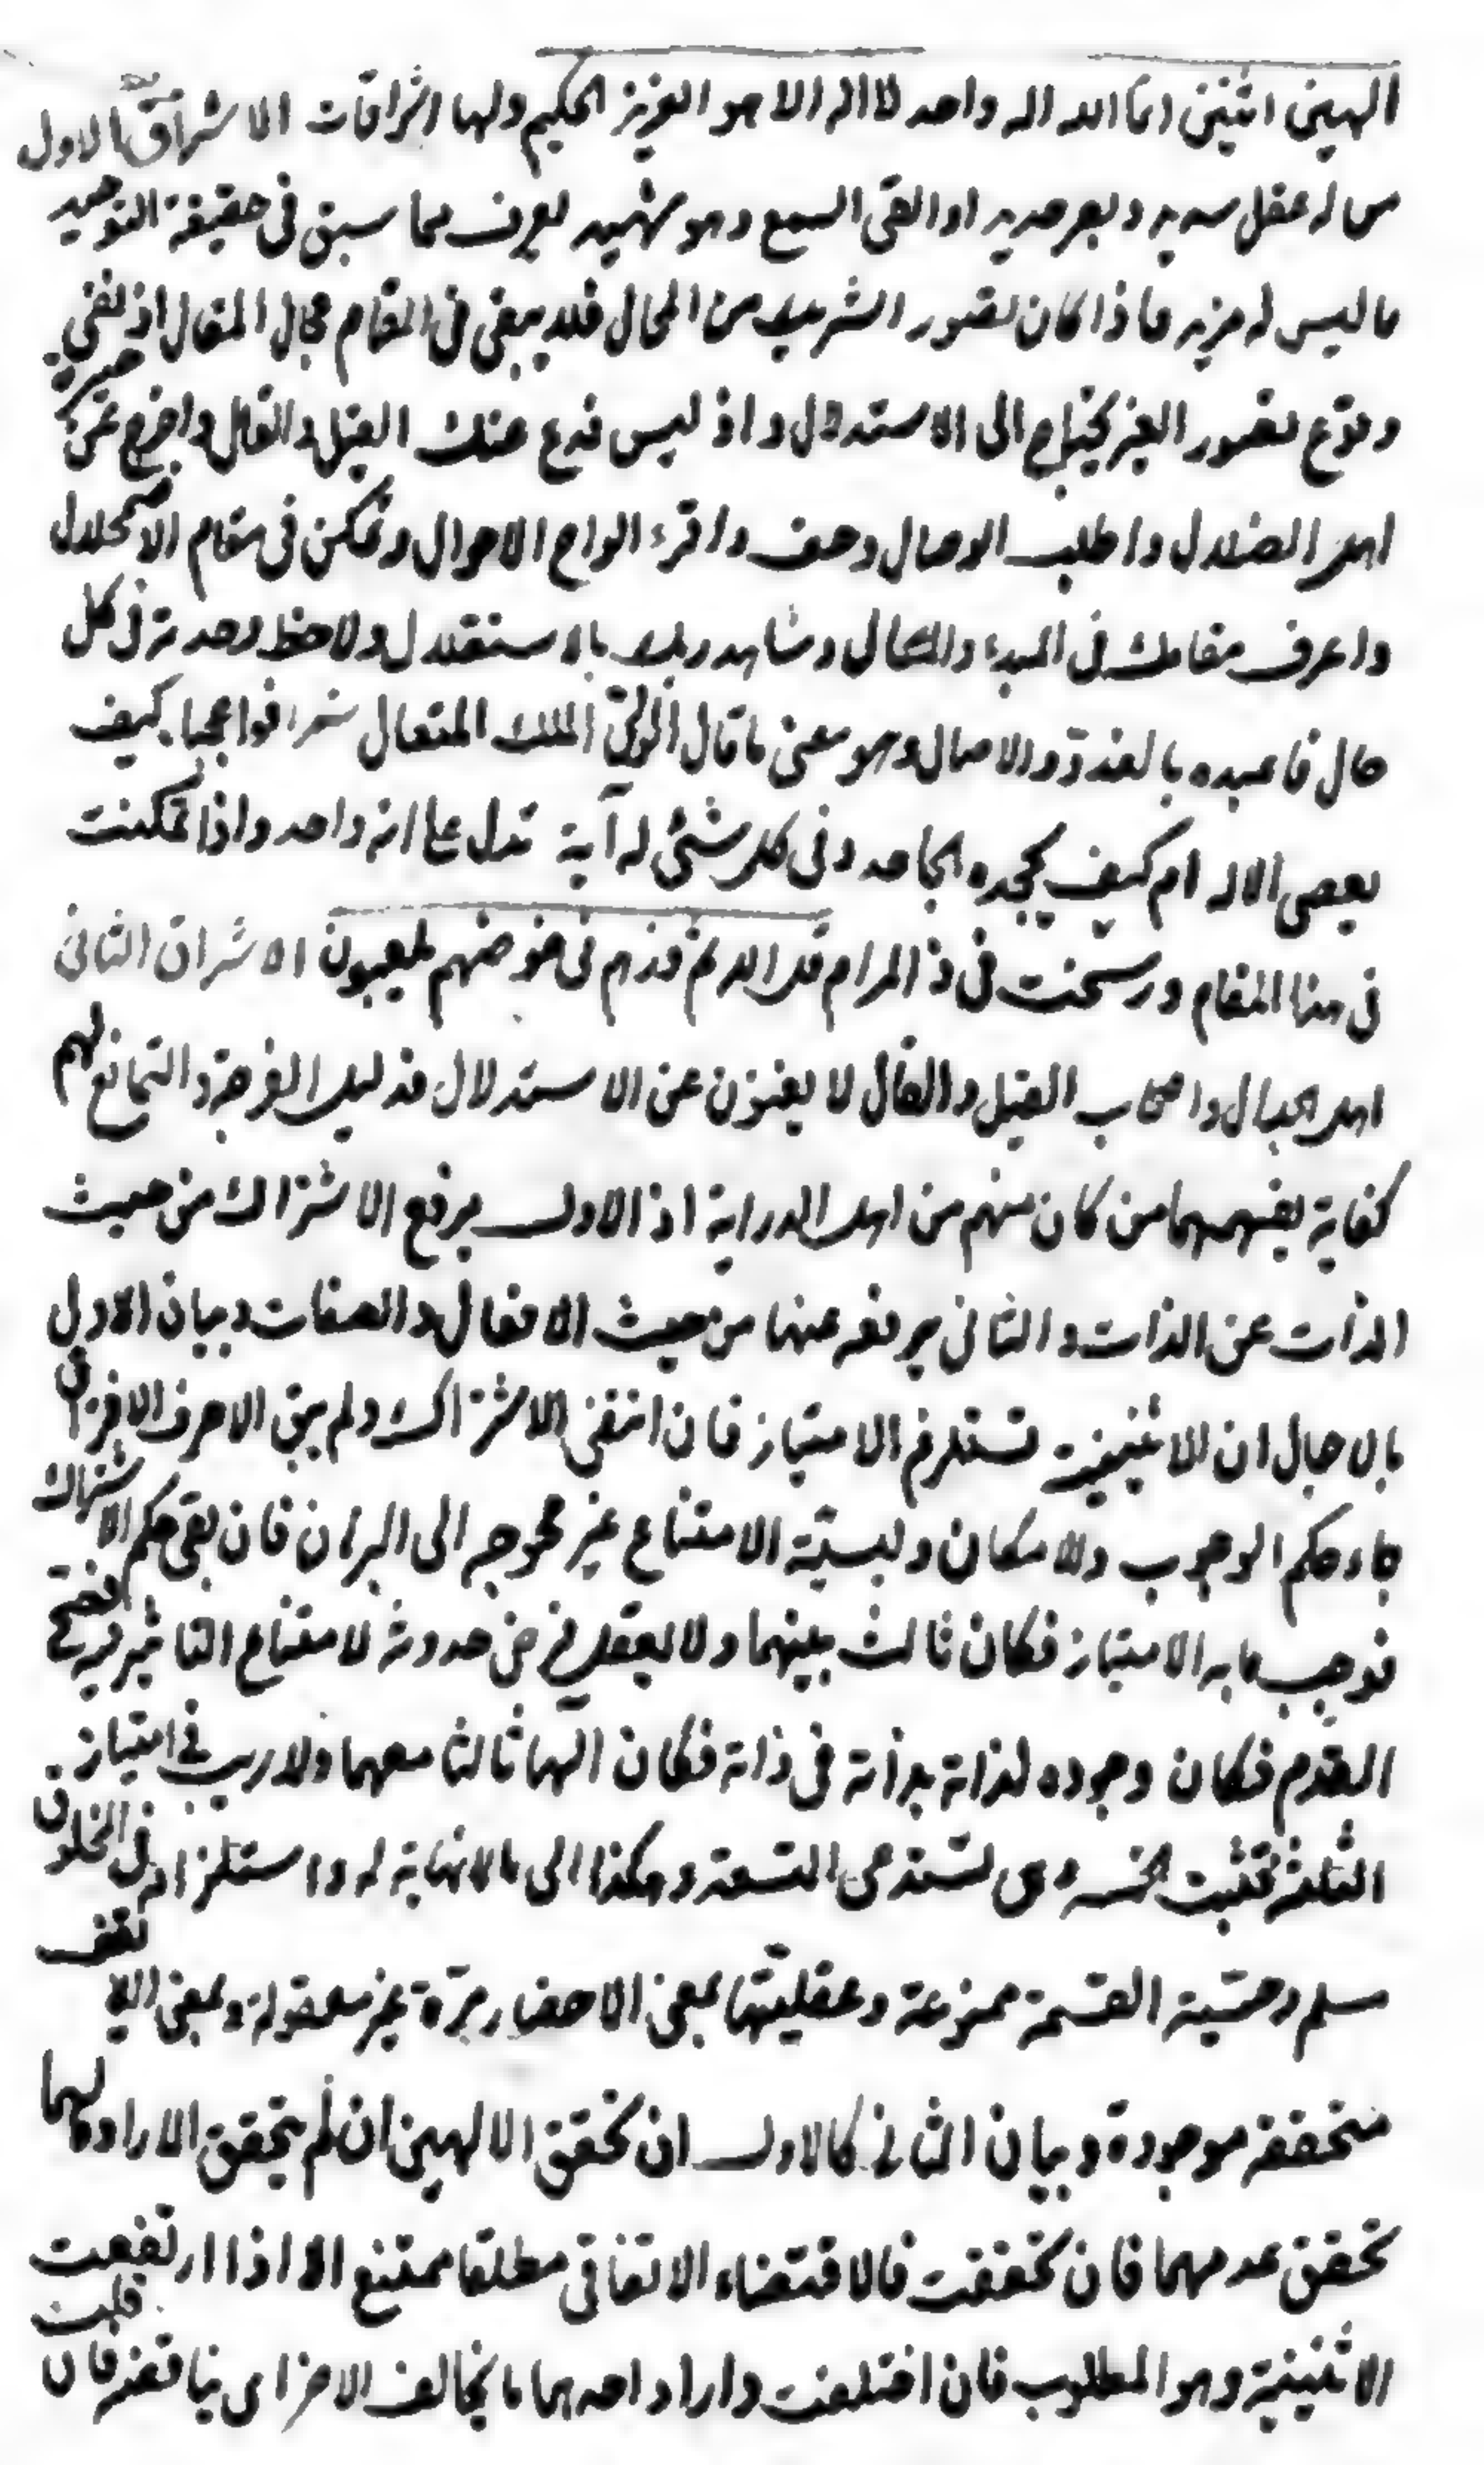 الهين اثنين انما الله اله واحد لا اله الا هو العزيز الحكيم ولها اشراقات الاشراق الاول
من له عقل سديد وبصر حديد او القى السمع وهو شهيد يعرف مما سبق فى حقيقة التوحيد
ما ليس له مزيد فاذا كان تصور الشريك من المحال فلا يبقى فى المقام مجال المقال اذ نفى
وقوع تصور الغير يحتاج الى الاستدلال واذ ليس فدع عنك القيل والقال واخرج عن حيرة
اهل الضلال واطلب الوصال وصف واقرء الواح الاحوال وتمكن فى مقام الاضمحلال
واعرف مقامك فى المبدء والمآل وشاهد ربك بالاستقلال ولاحظ وحدته فى كل
حال فاعبده بالغدو والاصال وهو معنى ما قال الملك المتعال شعر فواعجبا كيف
يعصى الاله ام كيف يجحده الجاحد وفى كل شئ له آية تدل على انه واحد واذا تمكنت
فى هذا المقام ورسخت فى ذا المرام قل الله ثم ذرهم فى خوضهم يلعبون الاشراق الثانى
اهل الجدال واصحاب القيل والقال لا يغنون عن الاستدلال فدليل الفرجة والتمانع لهم
كفاية يفهمهما من كان منهم من اهل الدراية اذ الاول يرفع الاشتراك من حيث
الذات عن الذات والثانى يرفعه عنها من حيث الافعال والصفات وبيان الاول
بالاجمال ان الاثنينية تستلزم الامتياز فان انتفى الاشتراك ولم يبق الا صرف الافتراق
جاء حكم الوجوب والامكان وليسية الامتناع غير محوجه الى البرهان فان بقى حكم الاشتراك
فوجب ما به الامتياز فكان ثالث بينهما ولا يعقل فرض حدوثه لامتناع التاثير فيه
القدم فكان وجوده لذاته بذاته فى ذاته فكان الها ثالثا معهما ولا ريب فى امتياز
الثلثة فتثبت الخمسة وهى تستدعى التسعة وهكذا الى ما لا نهاية له واستلزامه فى الخلو
سلم وحسية القسمة ممنوعة وعقليتها بمعنى الاحضار مرة غير معقولة وبمعنى
متحققة موجودة وبيان الثانى كالاول ان تحقق الالهين ان لم يتحقق الارادة لهما
تحقق عدمهما فان تحققت فالاقتضاء الاتفاقى مطلقا ممتنع الا اذا ارتفعت
الاثنينية وهو المطلوب فان اختلفت واراد احدهما ما يخالف الاخر اى يناقضه فان قلت